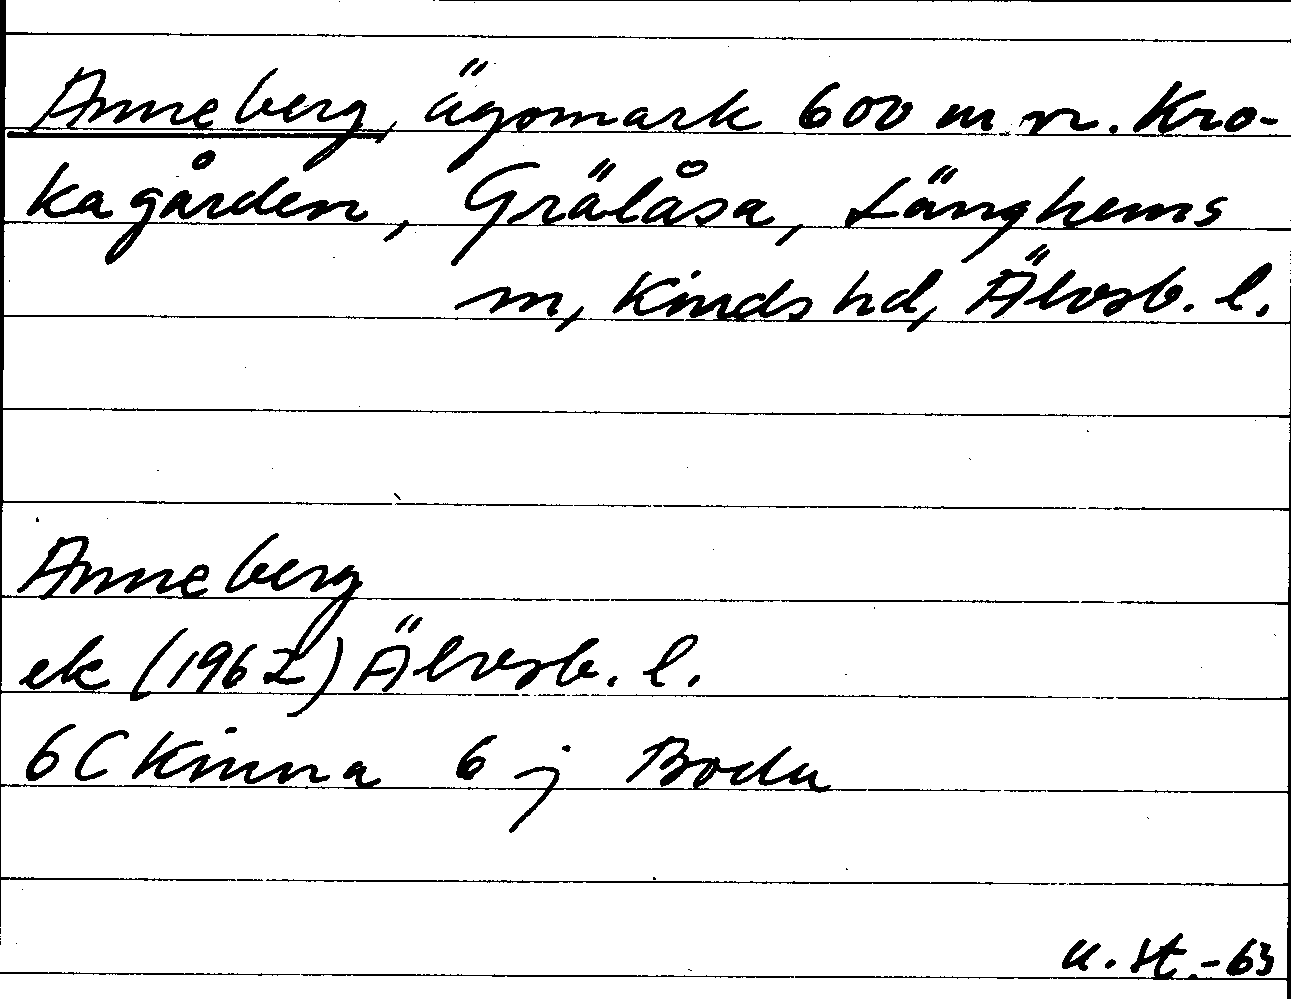 Anneberg, ägomark 600 m n. Kro-
kagården, Grälåsa, Länghems
sn, Kinds hd, Älvsb. l.
Anneberg
ek (1962) Älvsb. l.
6C Kinna 6 j Boda
U. St. -63